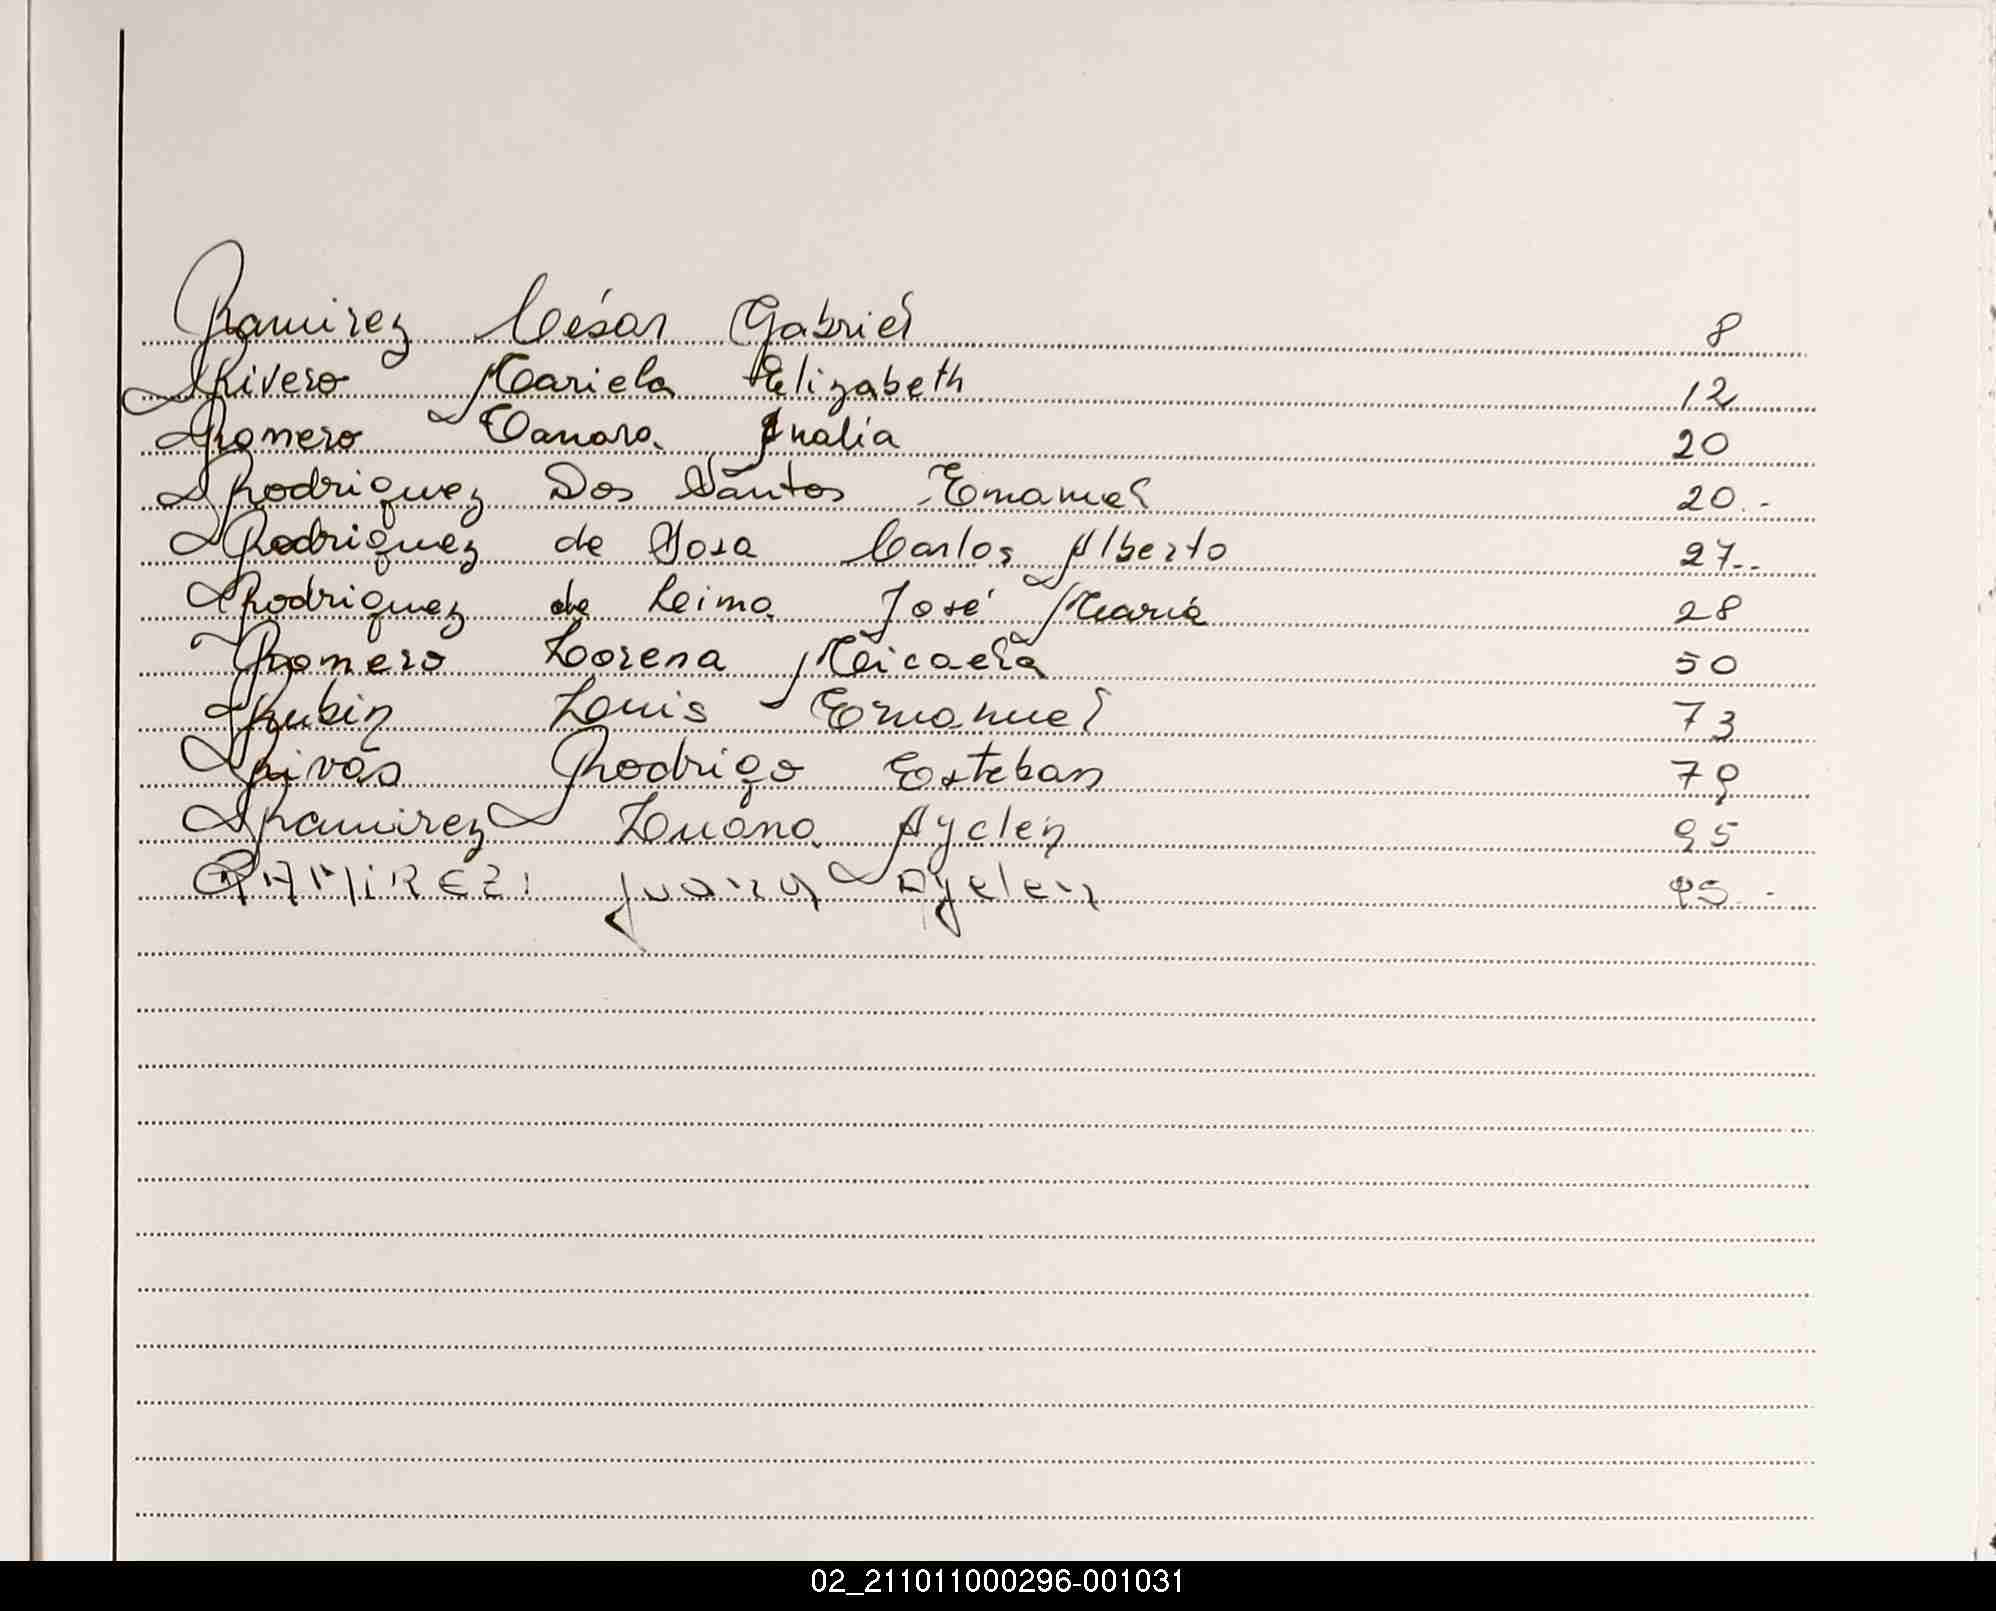 Ramirez César Gabriel 8
Rivero Mariela Elizabeth 12
Romero Tamara Analia 20
Rodriguez Dos Santos Emanuel 20.-
Rodriguez de Sosa Carlos Alberto 27..
Rodriguez de Leima José María 28
Romero Lorena Micaela 50
Rubin Louis Emanuel 73
Rivas Rodrigo Esteban 79
Ramirez Luana Ayelen 95
RAMIREZ: Juana Ayelen 95.-
02_211011000296-001031